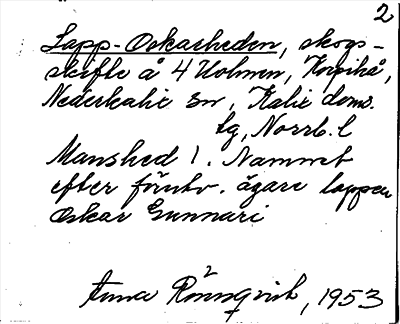 2
Lapp-Oskarheden, skogs-
skifte å 4 Holmen, Korpikå,
Nederkalix sn, Kalix doms.
tg, Norrb. l
Manshed 1. Namnet
efter förutv. ägare lappen
Oskar Gunnari
Anna Rönnqvist, 1953